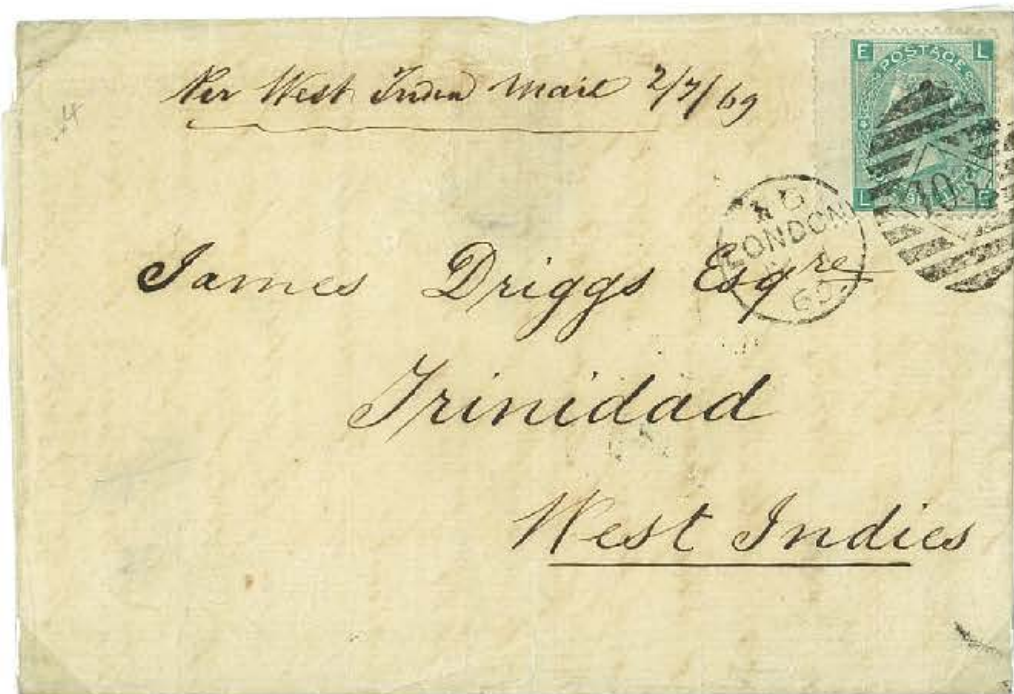 Per West India Mail 2/7/69
E L
POSTAGE
L E
LONDON
69
James Driggs Esqre
Trinidad
West Indies